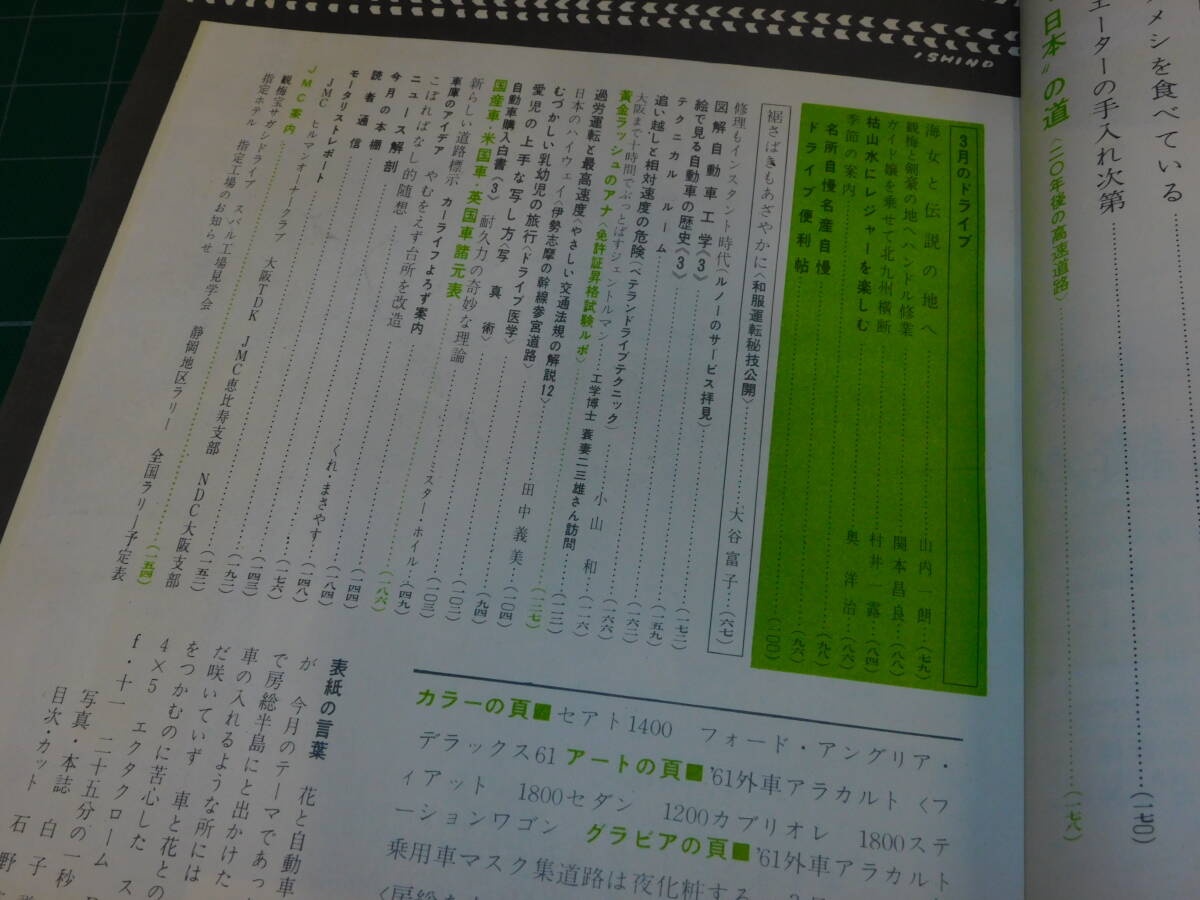 メシを食べている……………
エーターの手入れ次第………（一七〇）
日本〟の道〈二〇年後の高速道路〉………（一七八）
ISHINO
3月のドライブ
海女と伝説の地へ………山内一朗…（七九）
観梅と剣豪の地へハンドル修業
ガイド嬢を乗せて北九州横断………関本昌良…（八八）
枯山水にレジャーを楽しむ………村井露…（八四）
季節の案内………奥洋治…（八六）
名所自慢名産自慢………（九八）
ドライブ便利帖………（九六）
（一〇〇）
裾さばきもあざやかに〈和服運転秘技公開〉………大谷富子…（六七）
修理もインスタント時代〈ルノーのサービス拝見〉
図解自動車工学《3》………（一七二）
絵で見る自動車の歴史《3》
テクニカルルーム………（一五九）
追い越しと相対速度の危険〈ベテランドライブテクニック〉………（一六二）
大阪まで十時間でぶっとばすジェントルマン………小山和…（一六六）
黄金ラッシュのアナ〈免許証昇格試験ルポ〉
過労運転と最高速度〈やさしい交通法規の解説12〉
工学博士 蓑妻二三雄さん訪問………（一一六）
日本のハイウェイ〈伊勢志摩の幹線参宮道路〉………（一二二）
むづかしい乳幼児の旅行〈ドライブ医学〉………（一二七）
愛児の上手な写し方〈写真術〉………田中義美…（一〇四）
自動車購入白書《3》 耐久力の奇妙な理論………（九四）
国産車・米国車・英国車諸元表
新らしい道路標示 カーライフよろず案内………（一〇二）
車庫のアイデア やむをえず台所を改造………（一〇三）
こぼればなし的随想………ミスター・ホイル…（四九）
ニュース解剖………（一八六）
今月の本棚………（一四四）
読者通信………くれ・まさやす…（一八四）
モータリストレポート………（一四八）
JMC ヒルマンオーナークラブ 大阪TDK JMC恵比寿支部 NDC大阪支部
JMC案内………（一五四）
観梅宝サガシドライブ スバル工場見学会 静岡地区ラリー 全国ラリー予定表
指定ホテル 指定工場のお知らせ
カラーの頁■セアト1400 フォード・アングリア・
デラックス61 アートの頁■'61外車アラカルト〈フ
ィアット 1800セダン 1200カブリオレ 1800ステ
ーションワゴン グラビアの頁■'61外車アラカルト
乗用車マスク集道路は夜化粧する
表紙の言葉
が 今月のテーマであっ
花と自動車
で房総半島にと出かけた
車の入れるような所には
だ咲いていず 車と花との
をつかむのに苦心した
4×5 エクタクローム
f・十一 二十五分の一秒
写真・本誌 白子
目次・カット 石野